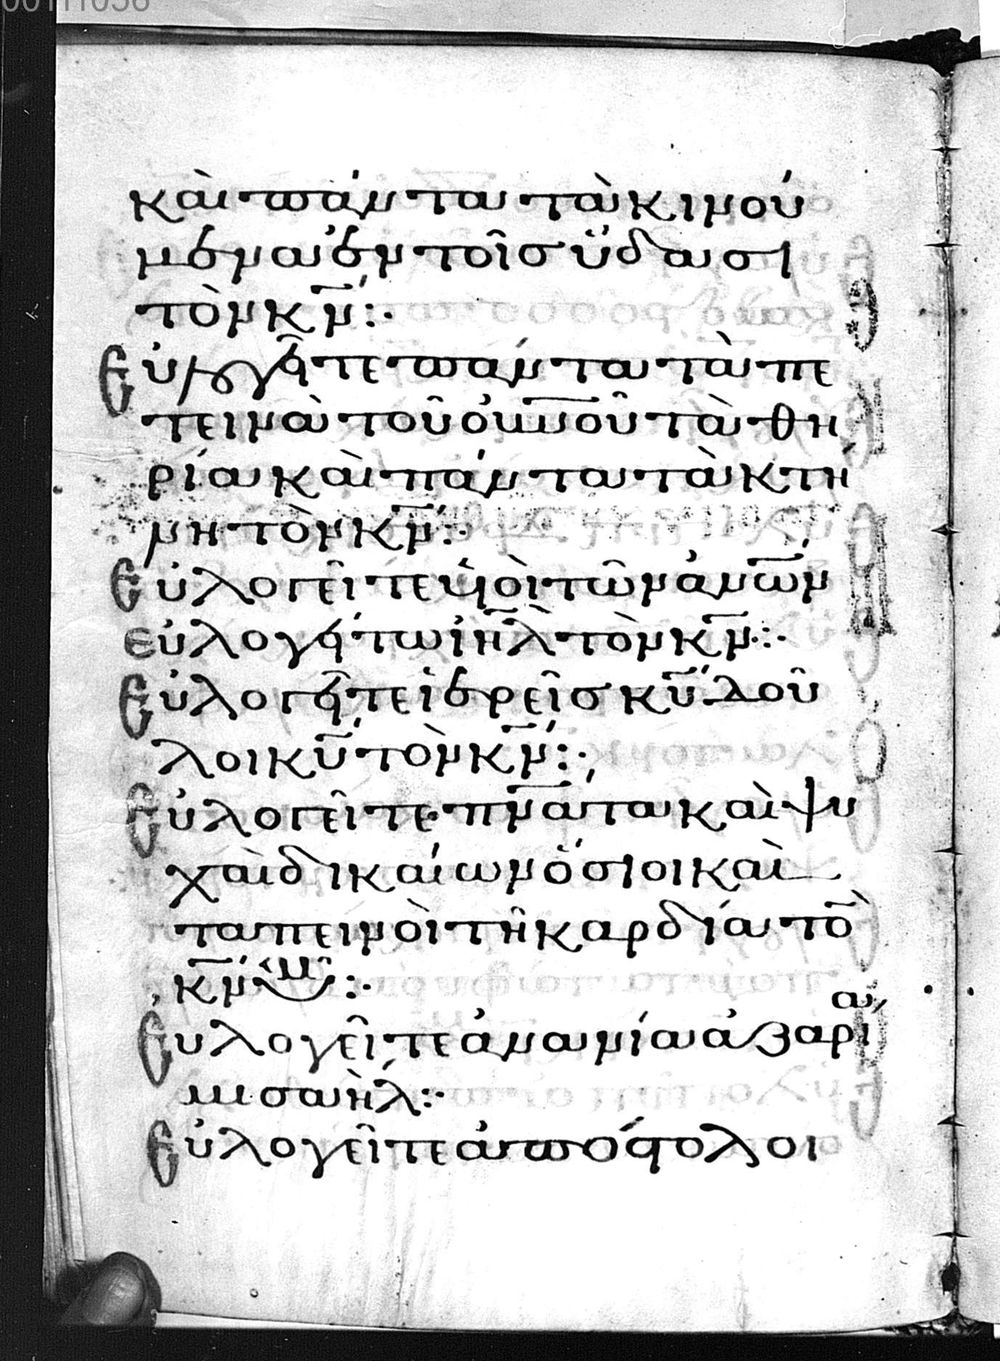 00111056
καὶ πάντα τὰ κινού
μενα ἐν τοῖσ ὕδασι
τὸν κ̅ν̅:·
Εὐλογεῖτε πάντα τὰ πε
τεινὰ τοῦ οὐν̅οῦ τὰ θη
ρία καὶ πάντα τὰ κτή
νη τὸν κ̅ν̅:·
Εὐλογεῖτε υἱοὶ τῶν ἀν̅ων
εὐλογείτω ἰη̅λ τὸν κ̅ν̅:·
Εὐλογεῖτε ἱερεῖσ κ̅υ̅ δοῦ
λοι κ̅υ̅ τὸν κ̅ν̅:·
Εὐλογεῖτε πν̅ατα καὶ ψυ
χαὶ δικαίων ὅσιοι καὶ
ταπεινοὶ τῆ καρδία τὸ
κ̅ν̅ :·
Εὐλογεῖτε ἀνανία ἀζαρία
μισαήλ:·
Εὐλογεῖτε ἀπόστολοι